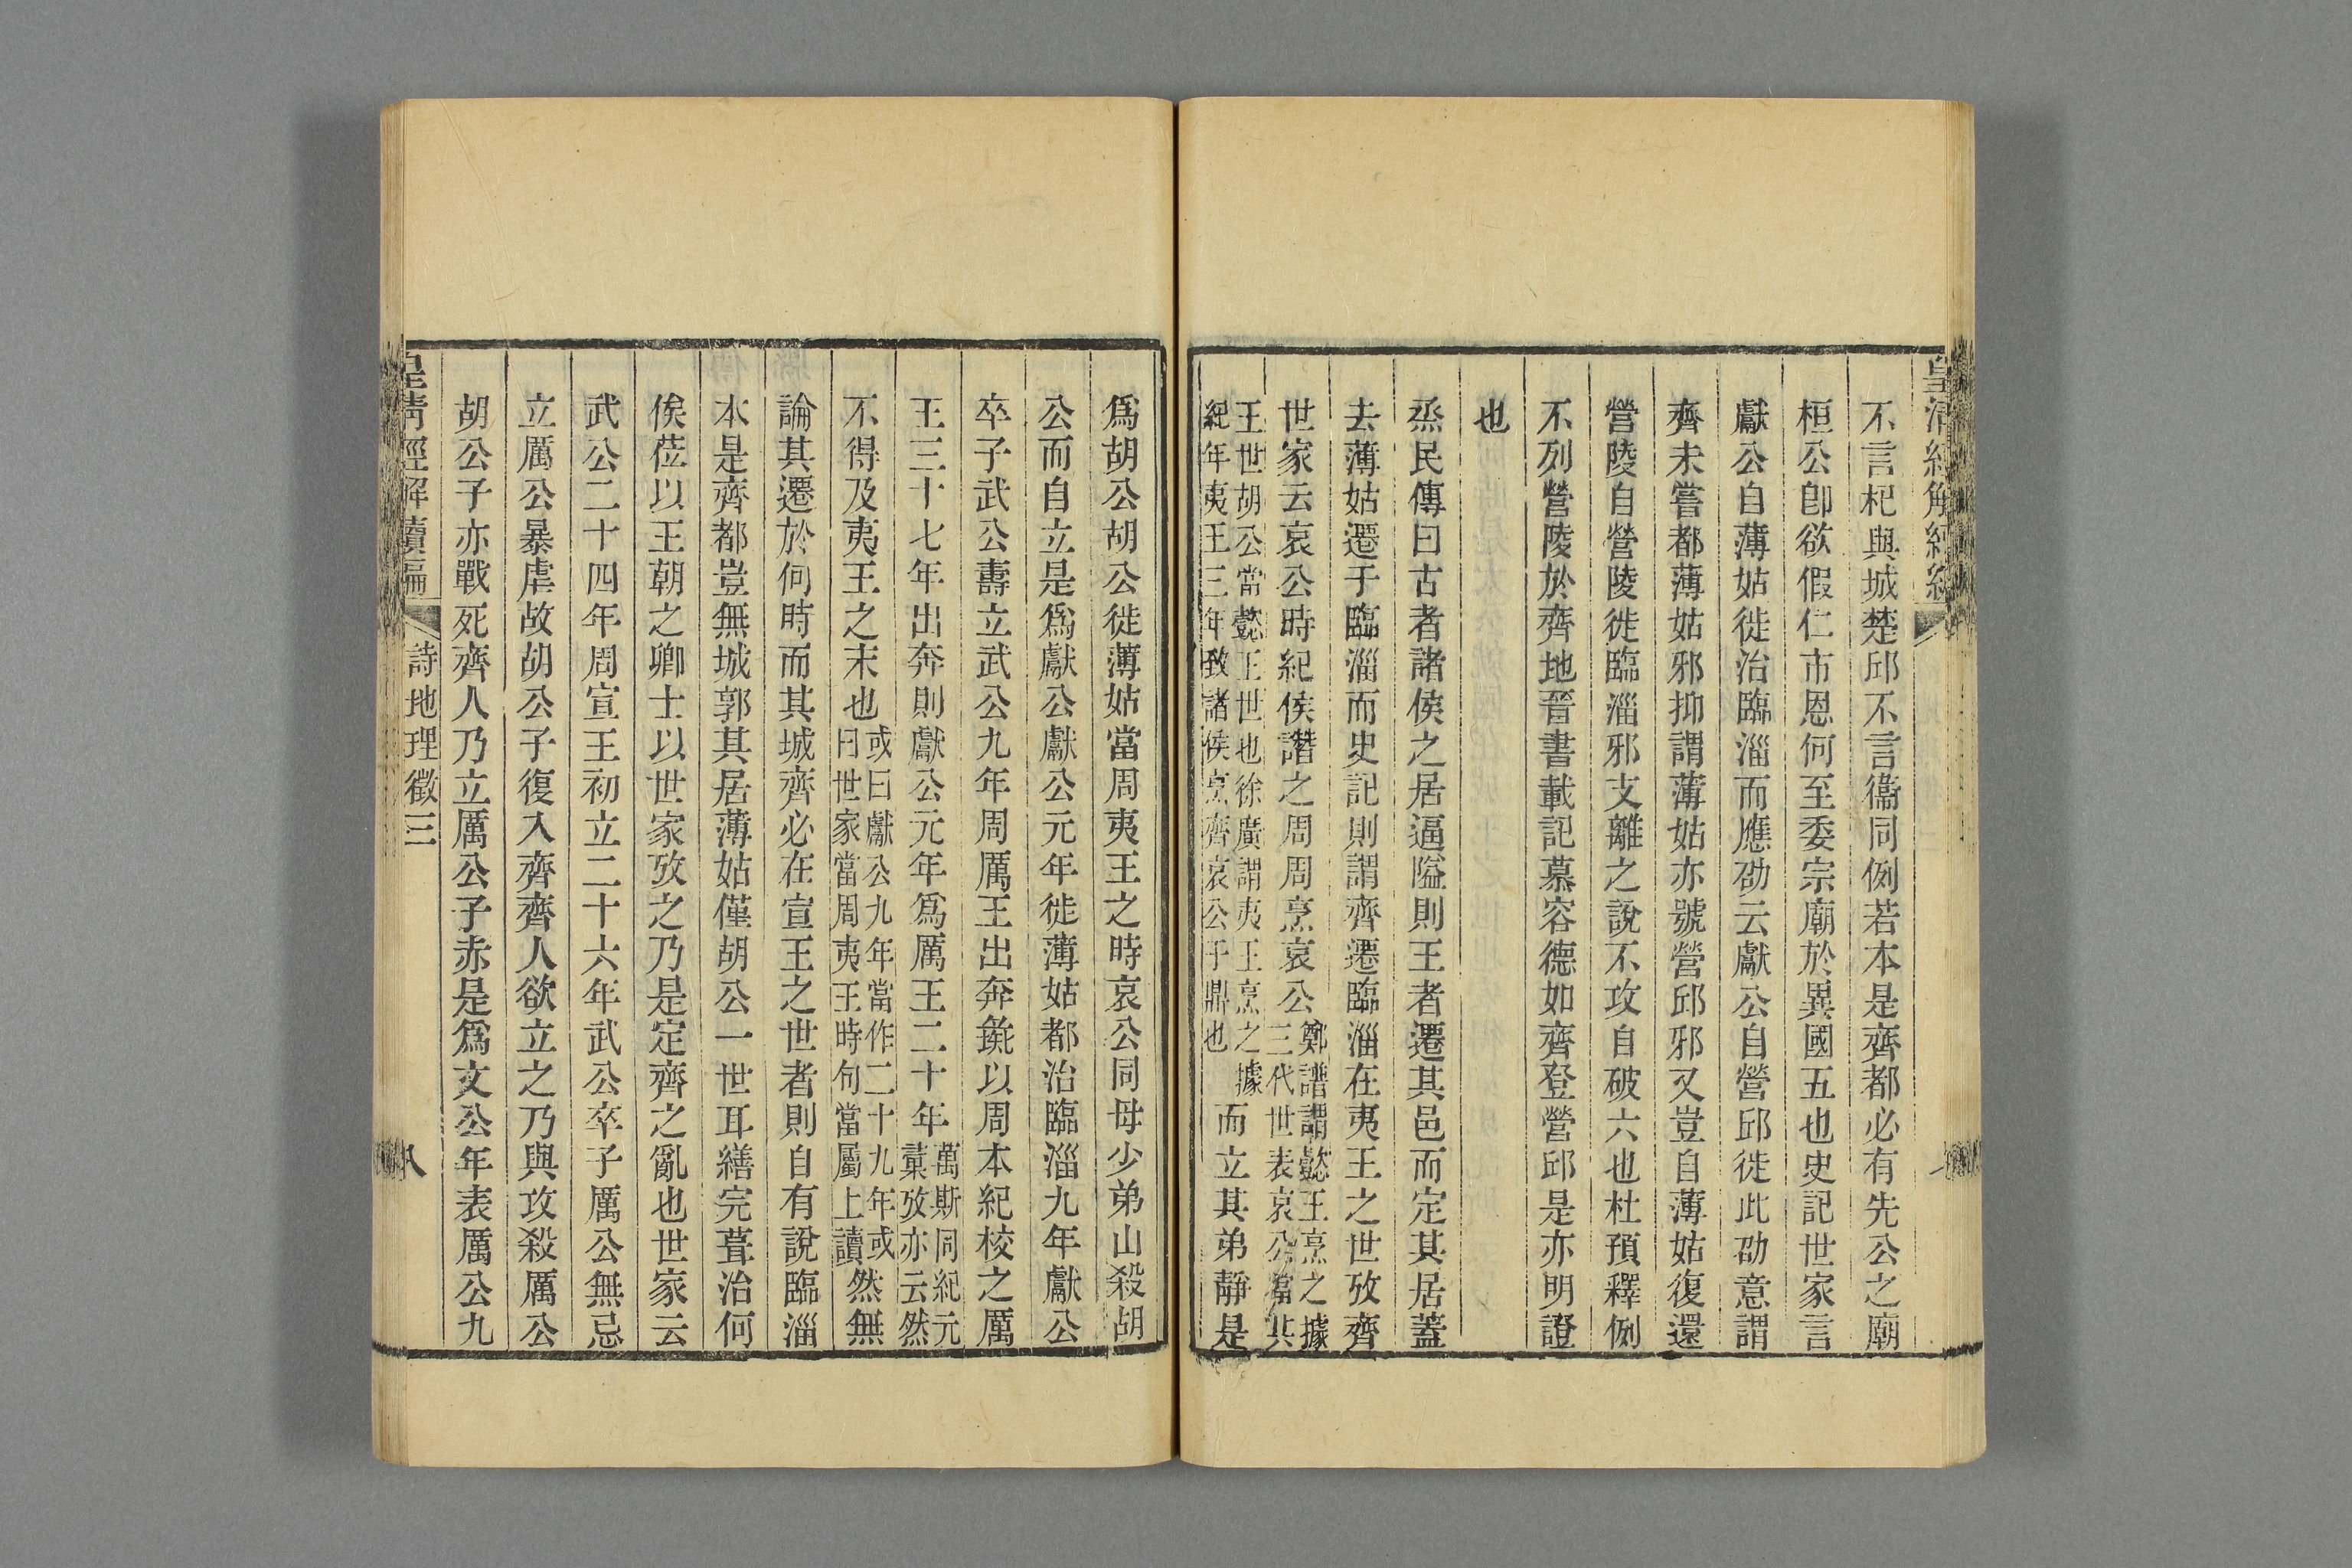 不言杞與城楚邱不言衞同例若本是齊都必有先公之廟
桓公卽欲假仁市恩何至委宗廟於異國五也史記世家言
獻公自薄姑徙治臨淄而應劭云獻公自營邱徙此劭意謂
齊未嘗都薄姑邪抑謂薄姑亦號營邱邪又豈自薄姑復還
營陵自營陵徙臨淄邪支離之說不攻自破六也杜預釋例
不列營陵於齊地晉書載記慕容德如齊登營邱是亦明證
也
烝民傳曰古者諸侯之居逼隘則王者遷其邑而定其居蓋
去薄姑遷于臨淄而史記則謂齊遷臨淄在夷王之世攷齊
世家云哀公時紀侯譖之周周烹哀公鄭譜謂懿王烹之據三代世表哀公當共
王世胡公當懿王世也徐廣謂夷王烹之據紀年夷王三年致諸侯烹齊哀公于鼎也而立其弟靜是
爲胡公胡公徙薄姑當周夷王之時哀公同母少弟山殺胡
公而自立是爲獻公獻公元年徙薄姑都治臨淄九年獻公
卒子武公壽立武公九年周厲王出奔彘以周本紀校之厲
王三十七年出奔則獻公元年爲厲王二十年萬斯同紀元彙攷亦云然
不得及夷王之末也或曰獻公九年當作二十九年或曰世家當周夷王時句當屬上讀然無
論其遷於何時而其城齊必在宣王之世者則自有說臨淄
本是齊都豈無城郭其居薄姑僅胡公一世耳繕完葺治何
俟莅以王朝之卿士以世家攷之乃是定齊之亂也世家云
武公二十四年周宣王初立二十六年武公卒子厲公無忌
立厲公暴虐故胡公子復入齊齊人欲立之乃與攻殺厲公
胡公子亦戰死齊人乃立厲公子赤是爲文公年表厲公九
皇清經解續編 詩地理徵三 八